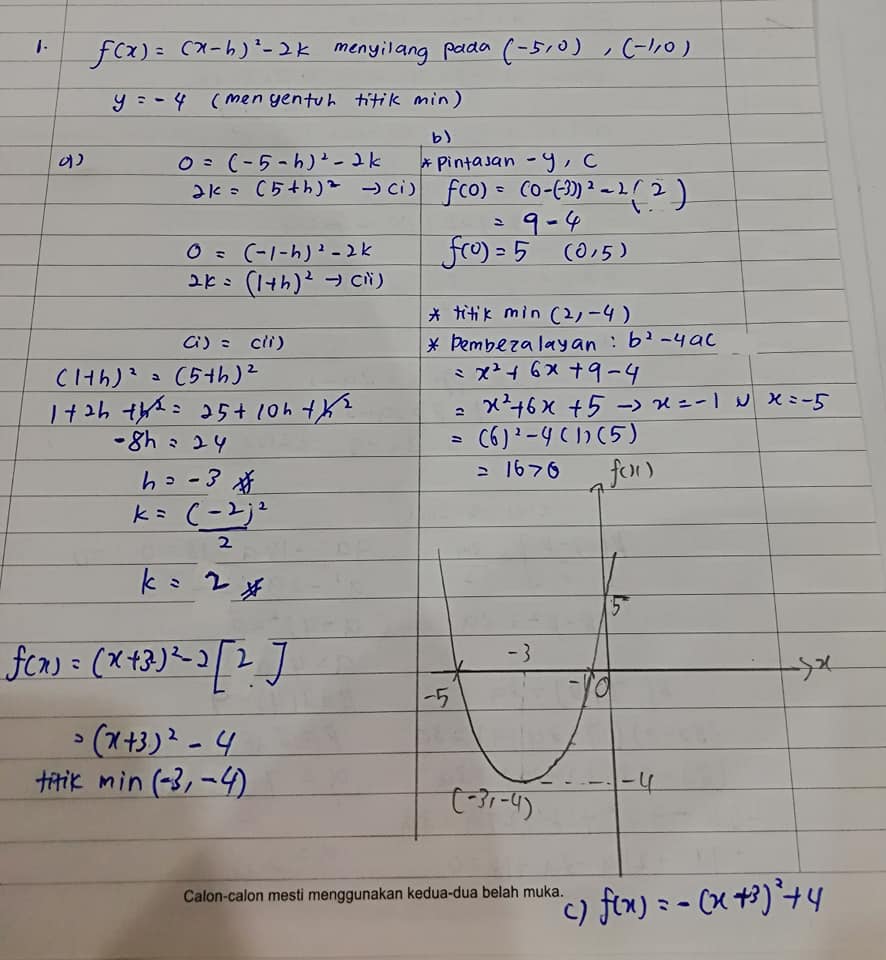 1. f(x) = (x-h)² - 2k menyilang pada (-5,0) , (-1,0)
y = -4 (menyentuh titik min)
a) 0 = (-5-h)² - 2k
2k = (5+h)² → (i)
0 = (-1-h)² - 2k
2k = (1+h)² → (ii)
(i) = (ii)
(1+h)² = (5+h)²
1+2h+h² = 25+10h+h²
-8h = 24
h = -3 *
k = (-2)²
2
k = 2 *
f(x) = (x+3)² - 2[2]
= (x+3)² - 4
titik min (-3, -4)
b)
* Pintasan -y, c
f(0) = (0-(-3))² - 2(2)
= 9 - 4
f(0) = 5 (0,5)
* titik min (2, -4)
* Pembezalayan : b² - 4ac
= x² + 6x + 9 - 4
= x² + 6x + 5 → x = -1 ∪ x = -5
= (6)² - 4(1)(5)
= 16 > 0
f(x)
5
-3
x
-5
-1
0
-4
(-3, -4)
Calon-calon mesti menggunakan kedua-dua belah muka.
c) f(x) = -(x+3)² + 4